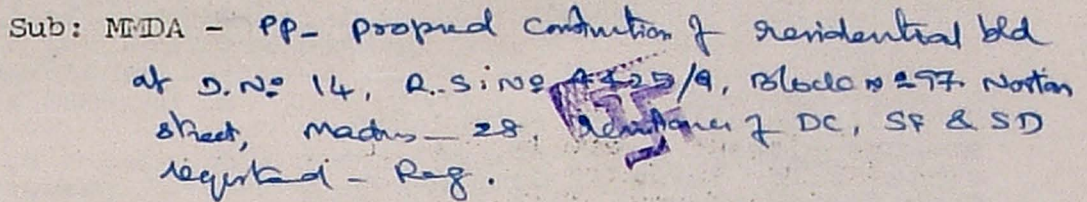 Sub: MMDA - PP- propsed construction of residential bld
at D.No 14, R.S.No 4325/9, Block No 97. Norton
street, Madras - 28, remittance of DC, SF & SD
requested - Reg.